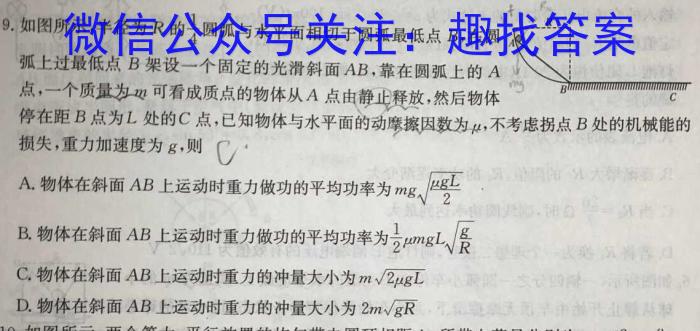 微信公众号关注：趣找答案
9. 如图所示，半径为R的
圆弧与水平面相切于圆弧最低点
弧上过最低点 B 架设一个固定的光滑斜面 AB，靠在圆弧上的 A
点，一个质量为 m 可看成质点的物体从 A 点由静止释放，然后物体
停在距 B 点为 L 处的 C 点，已知物体与水平面的动摩擦因数为 μ，不考虑拐点 B 处的机械能的
损失，重力加速度为 g，则
B
C
mg
A. 物体在斜面 AB 上运动时重力做功的平均功率为 mg√(μgL/2)
B. 物体在斜面 AB 上运动时重力做功的平均功率为 1/2 μmgL√(g/R)
C. 物体在斜面 AB 上运动时重力的冲量大小为 m√(2μgL)
D. 物体在斜面 AB 上运动时重力的冲量大小为 2m√(gR)